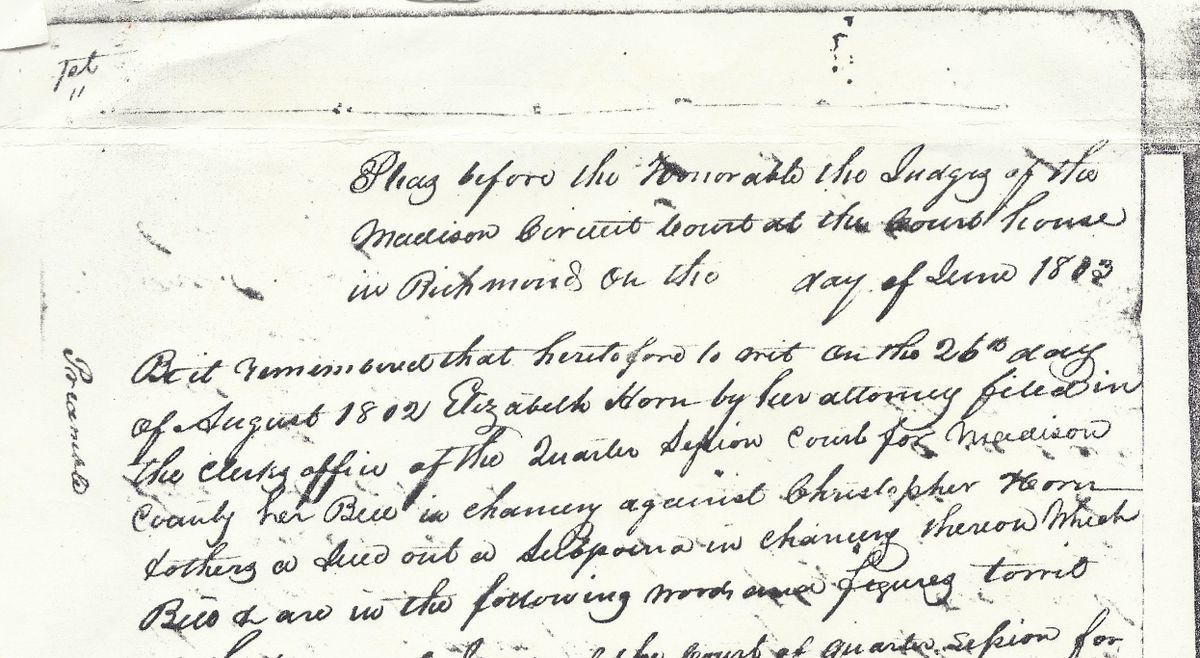 Pleas before the Honorable the Judges of the
Madison Circuit Court at the Court house
in Richmond on the day of June 1803
Preamble
Be it remembered that heretofore to wit on the 26th day
of August 1802 Elizabeth Horn by her attorney filed in
the clerks office of the Quarter Session Court for Madison
County her Bill in chancery against Christopher Horn
& others & sued out a Subpoena in chancery thereon Which
Bill & are in the following words and figures towit
the Court of quarter Session for